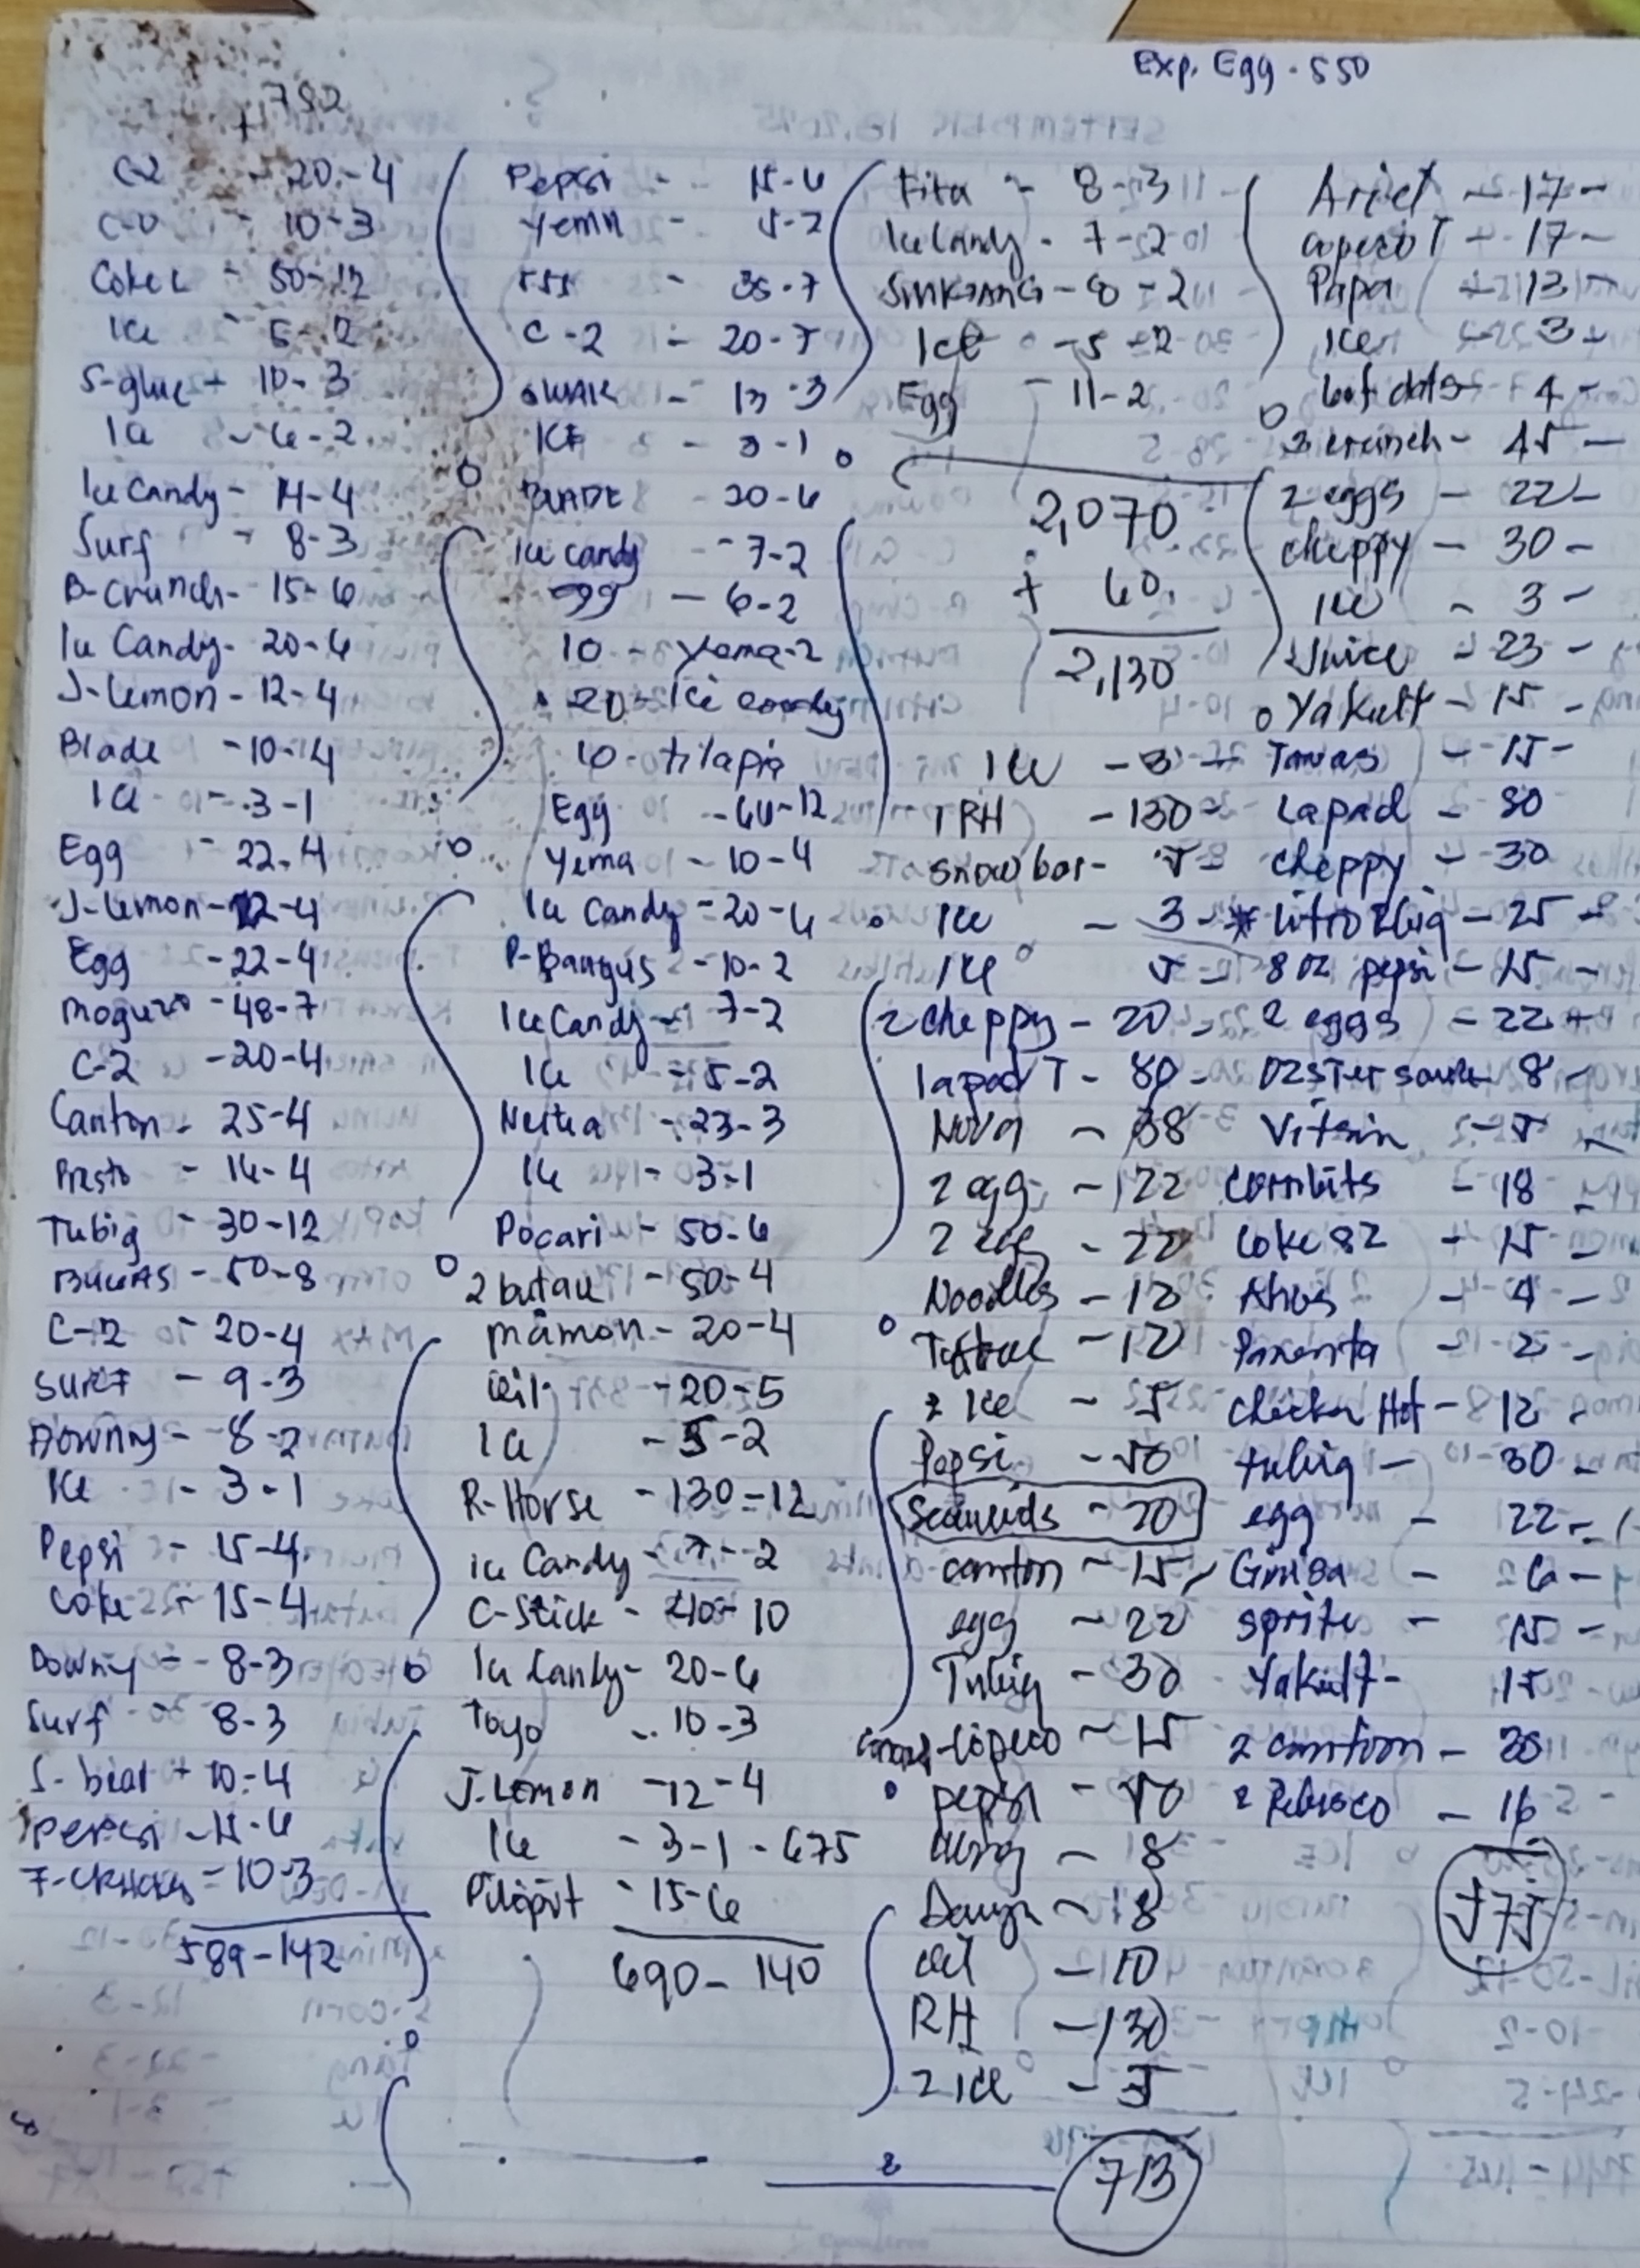 Exp. Egg - 550
+ 792
C2 - 20-4
C-0 - 10-3
Coke L - 50-12
Ice - 5-2
S-glue + 10-3
Ice - 6-2
Ice Candy - 14-4
Surf - 8-3
B-Crunch - 15-6
Ice Candy - 20-6
J-Lemon - 12-4
Blade - 10-4
Ice - 3-1
Egg - 22-4
J-Lemon - 12-4
Egg - 22-4
mogu - 48-7
C-2 - 20-4
Canton - 25-4
Presto - 16-4
Tubig - 30-12
- 50-8
C-2 - 20-4
Surf - 9-3
Downy - 8-2
Ice - 3-1
Pepsi - 15-4
Coke - 15-4
Downy - 8-3
Surf - 8-3
S-bear + 10-4
Pepsi - 15-6
F-Crackers = 10-3
589-142
Pepsi - 15-6
Yema - 5-2
555 - 35-7
C-2 - 20-7
- 13-3
ICE - 3-1
BLADE - 20-6
Ice candy - 7-2
egg - 6-2
10 - Yema-2
20 - Ice candy
10 - tilapia
Egg - 60-12
Yema - 10-4
Ice Candy - 20-6
P-Bangus - 10-2
Ice Candy - 7-2
Ice - 5-2
Nestea - 23-3
Ice - 3-1
Pocari - 50-6
2 butane - 50-4
mamon - 20-4
Oil - 20-5
Ice - 5-2
R-Horse - 130-12
Ice Candy - 7-2
C-Stick - 40-10
Ice Candy - 20-6
Toyo - 10-3
J.Lemon - 12-4
Ice - 3-1 - 675
Pilipit - 15-6
690-140
Fita - 8-3
Ice Candy - 7-2
Sinigang - 8-2
Ice - 5-2
Egg - 11-2
2,070
+ 60.
2,130
Ice - 3
1 RH - 130
snow bar - 5
Ice - 3
Ice 5
2 cheppy - 20
lapad T - 80
Nova - 38
2 egg - 22
2 egg - 22
Noodles - 12
- 12
2 Ice - 5
Pepsi - 50
Seaweeds - 20
canton - 15
egg - 22
Tubig - 30
copeco - 15
pepsi - 50
- 8
- 8
oil - 10
RH - 130
2 ice - 5
713
Ariel - 17
copeco T - 17
Papa + 13
Ice 3
hot dots - 4
3 crunch - 45
2 eggs - 22
cheppy - 30
Ice - 3
Juice - 23
Yakult - 15
Tawas - 15
Lapad - 80
cheppy - 30
* Litro tubig - 25
8 oz pepsi - 15
2 eggs - 22
Oyster sauce - 8
Vitsin - 5
Cornbits - 18
Coke 8z - 15
Ahos - 4
Pamenta - 2
chicken Hot - 12
tubig - 30
egg - 22
Ginisa - 6
sprite - 15
Yakult - 15
2 cantoon - 30
2 Rebisco - 16
575